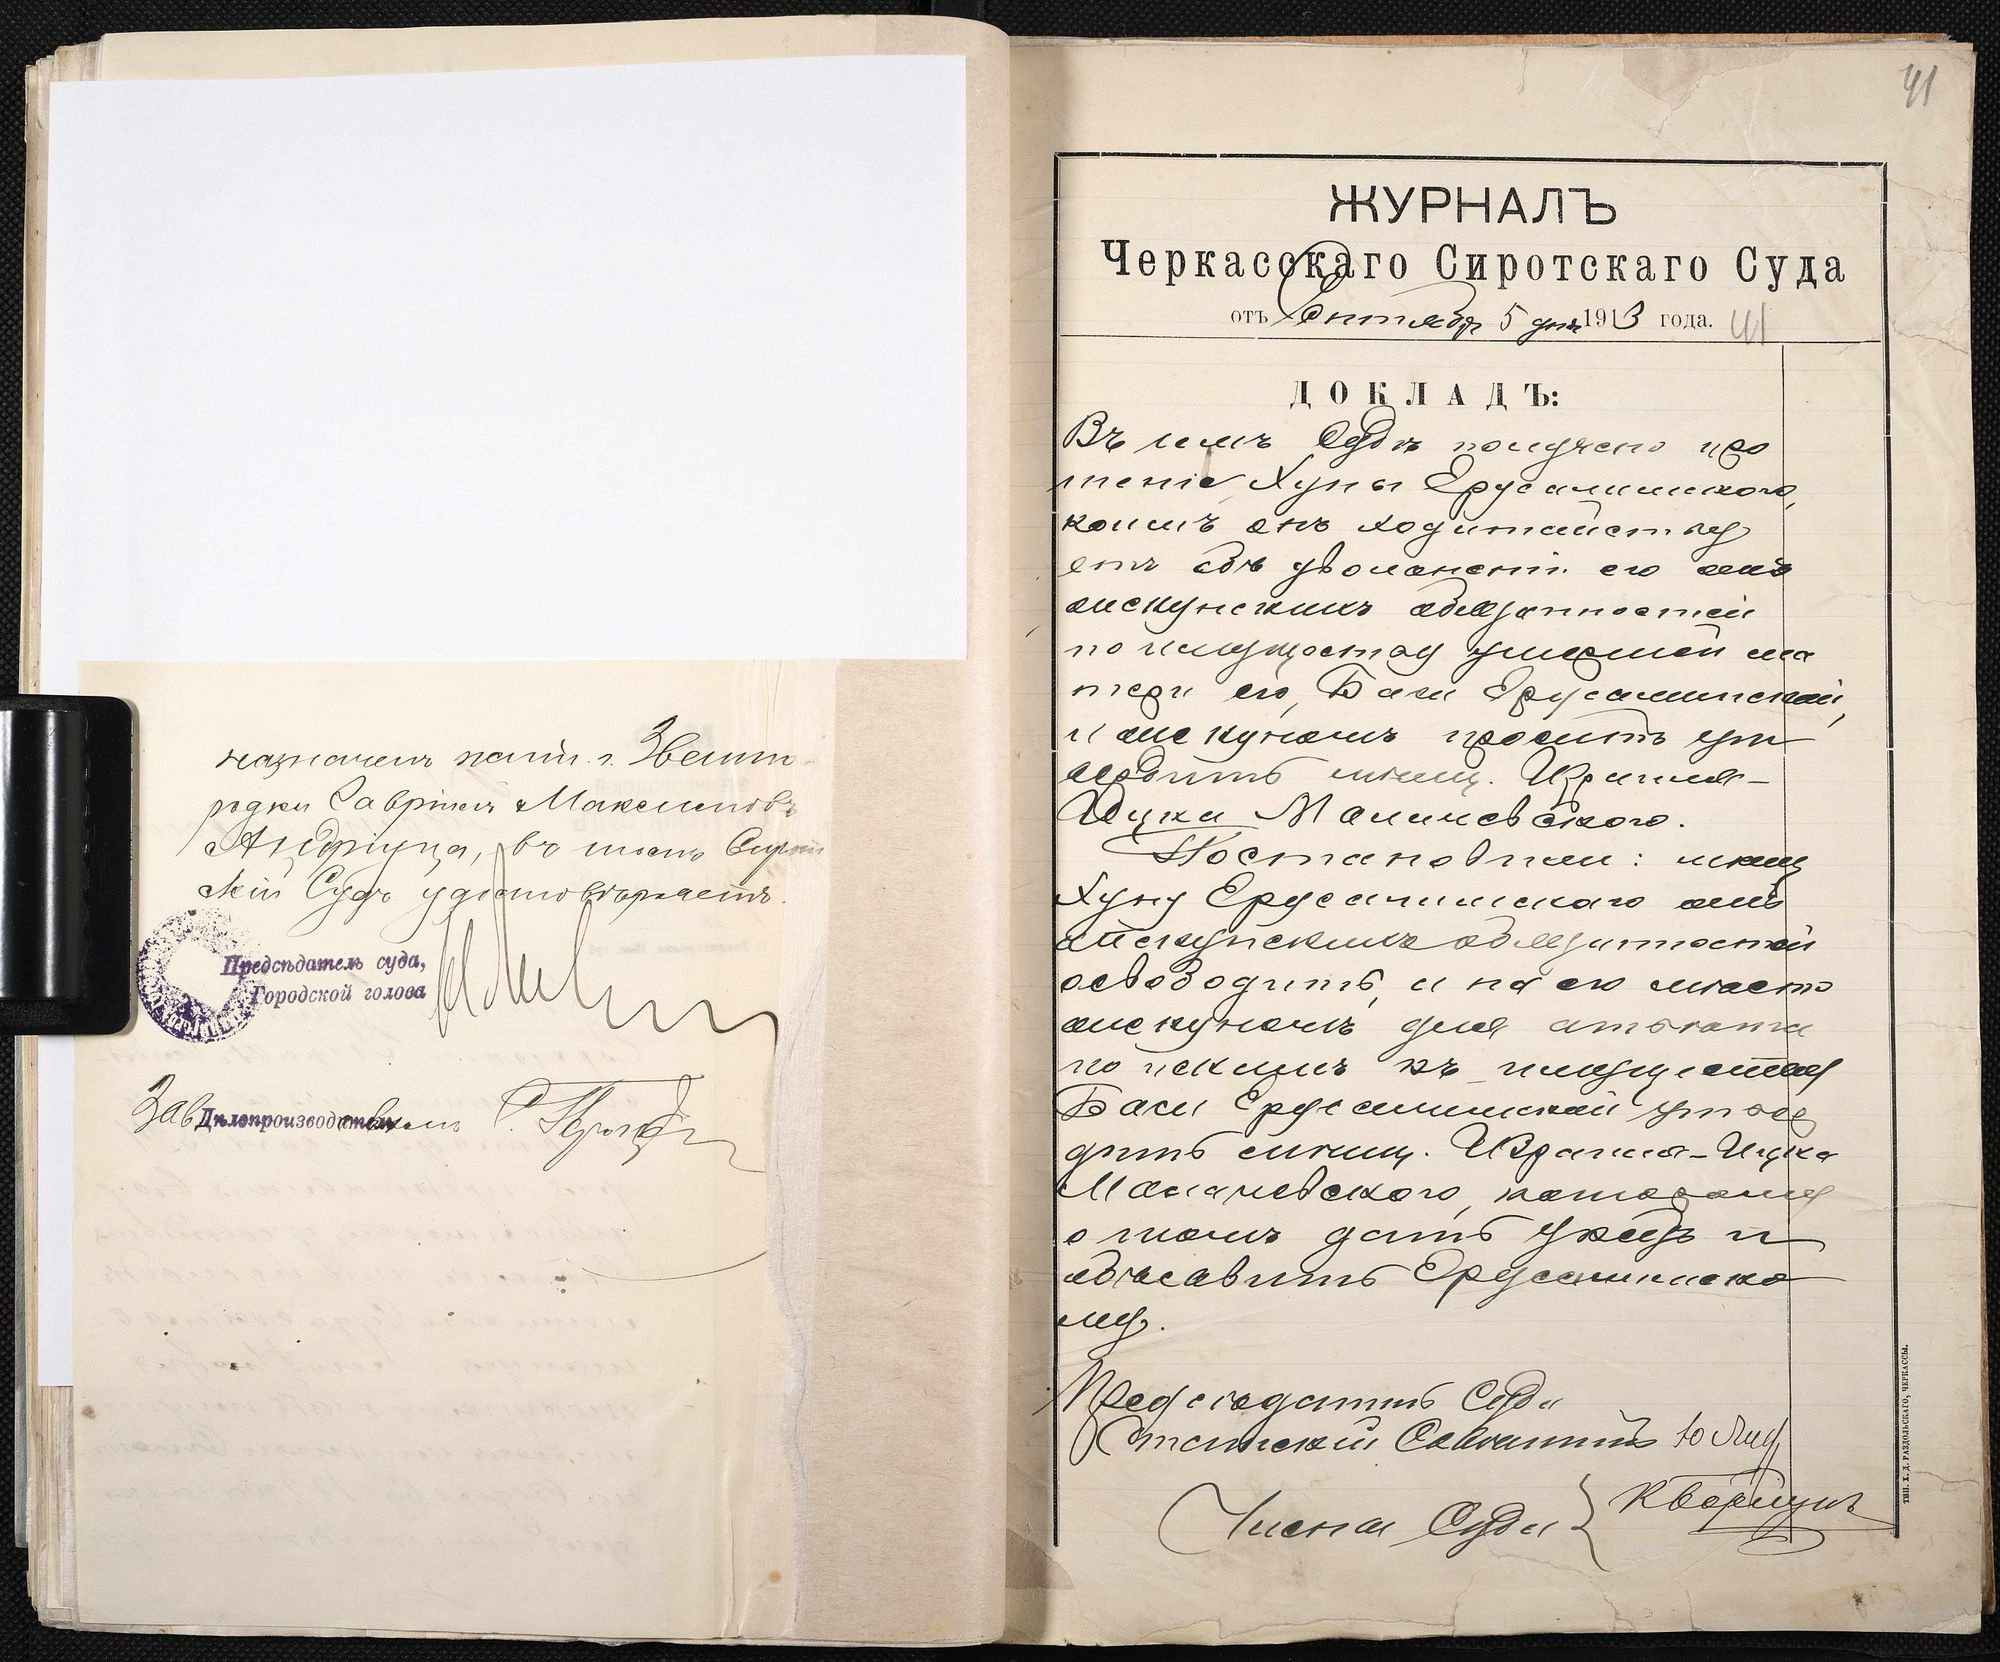 назначенъ пот. п. г. Звениго-
родки Гавріилъ Максимовъ
Андріуца, въ чемъ Сирот
скій Судъ удостовѣряетъ.
Предсѣдатель суда,
Городской голова
Зав. Дѣлопроизводствомъ
41
ЖУРНАЛЪ
Черкасскаго Сиротскаго Суда
отъ Сентября 5 дня 1913 года. 41
ДОКЛАДЪ:
Въ семъ Судѣ получено про
шеніе Хуны Ерусалимскаго,
коимъ онъ ходатайству
етъ объ увольненіи его отъ
опекунскихъ обязанностей
по имуществу умершей ма
тери его, Баси Ерусалимской,
и опекуномъ проситъ ут
вердить мѣщ. Израиля-
Ицка Малиневскаго.
Постановили: мѣщ
Хуну Ерусалимскаго отъ
опекунскихъ обязанностей
освободить, и на его мѣсто
опекуномъ для отвѣта
по искамъ къ имуществу
Баси Ерусалимской утвер
дить мѣщ. Израиля-Ицка
Малиневскаго, которому
о томъ дать указъ и
объявить Ерусалимско
му.
Предсѣдатель Суда
Статскій Совѣтникъ
Члены Суда
ТИП. Х. Д. РАЗДОЛЬСКАГО, ЧЕРКАССЫ.